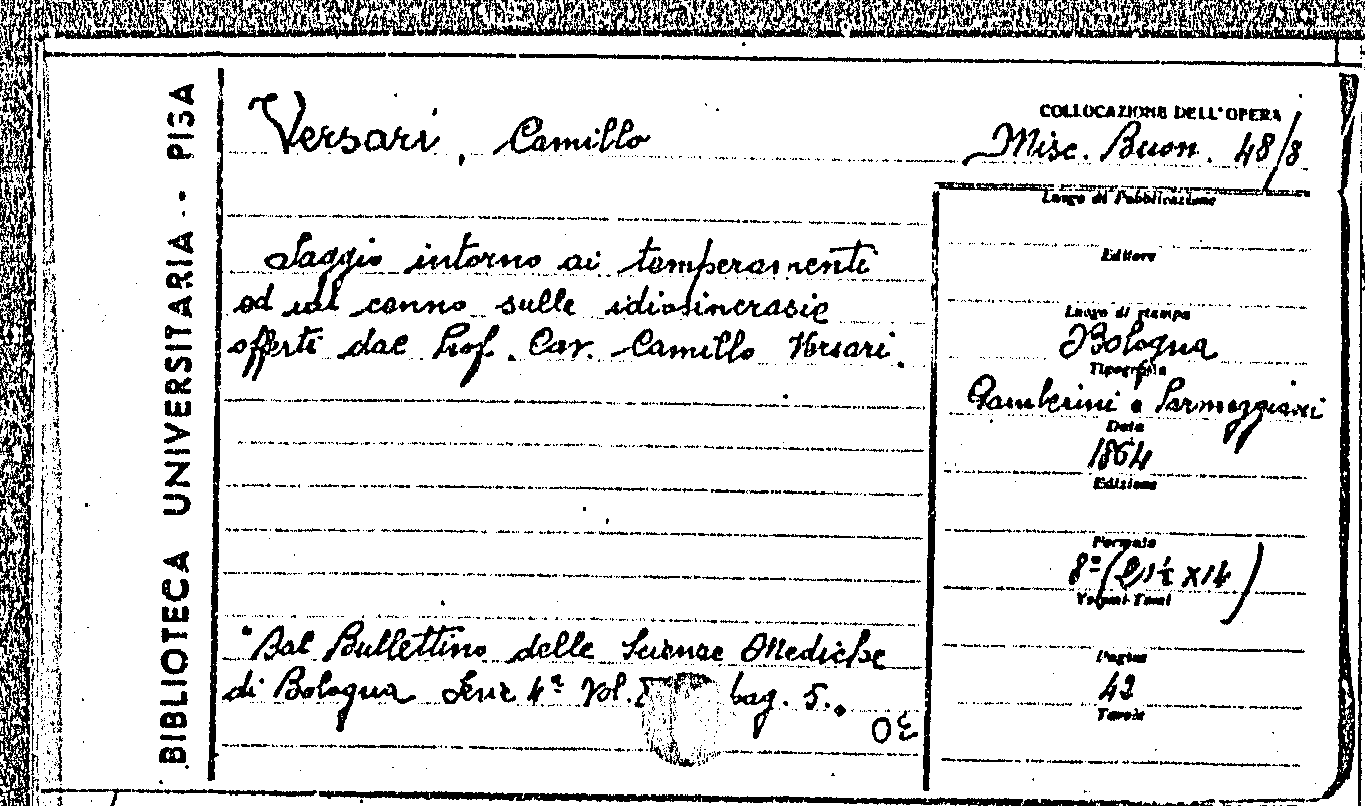 BIBLIOTECA UNIVERSITARIA - PISA
Versari, Camillo
COLLOCAZIONE DELL'OPERA
Misc. Buon. 48/8
Saggio intorno ai temperamenti
ed un cenno sulle idiosincrasie
offerti dal Prof. Cav. Camillo Versari.
"Dal Bullettino delle Scienze Mediche
di Bologna Serie 4ª Vol. pag. 5.
Luogo di Pubblicazione
Editore
Luogo di stampa
Bologna
Tipografia
Gamberini e Parmeggiani
Data
1864
Edizione
Formato
8º (21½ x14)
Volumi-Tomi
Pagine
42
Tavole